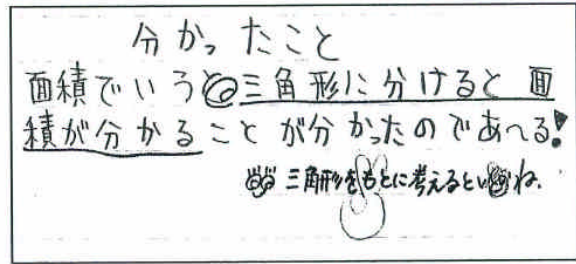 分かったこと
面積でいうと三角形に分けると面
積が分かることが分かったのであ〜る!
三角形をもとに考えるといいね。